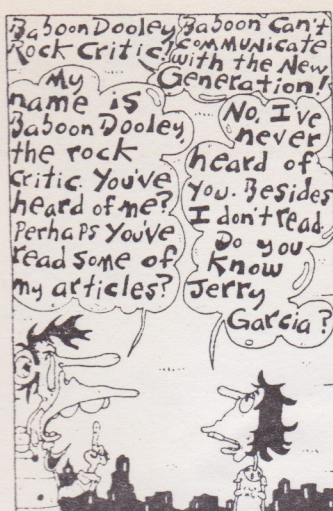 Baboon Dooley,
Rock Critic!
Baboon Can't
Communicate
with the New
Generation!
My
name is
Baboon Dooley,
the rock
critic. You've
heard of me?
Perhaps you've
read some of
my articles?
No, I've
never
heard of
you. Besides
I don't read.
Do you
know
Jerry
Garcia?